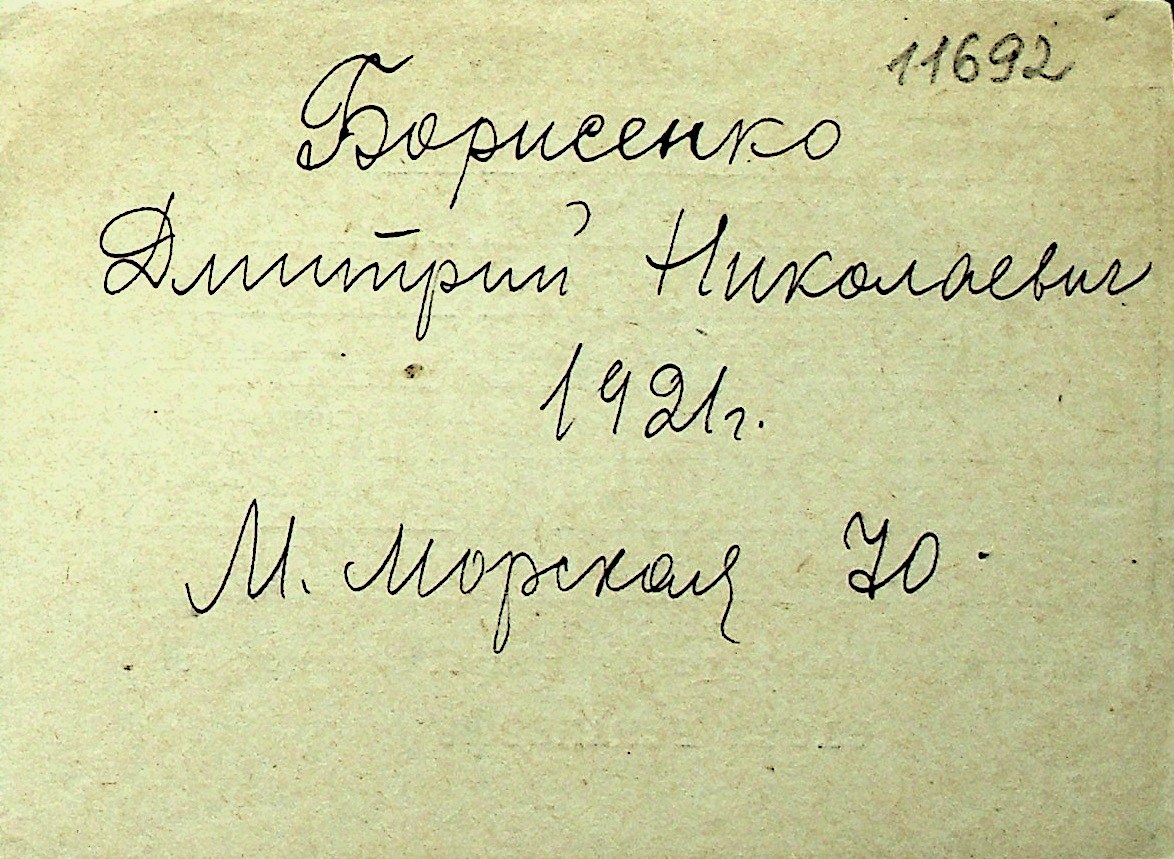 11692
Борисенко
Дмитрий Николаевич
1921г.
М. Морская 70.